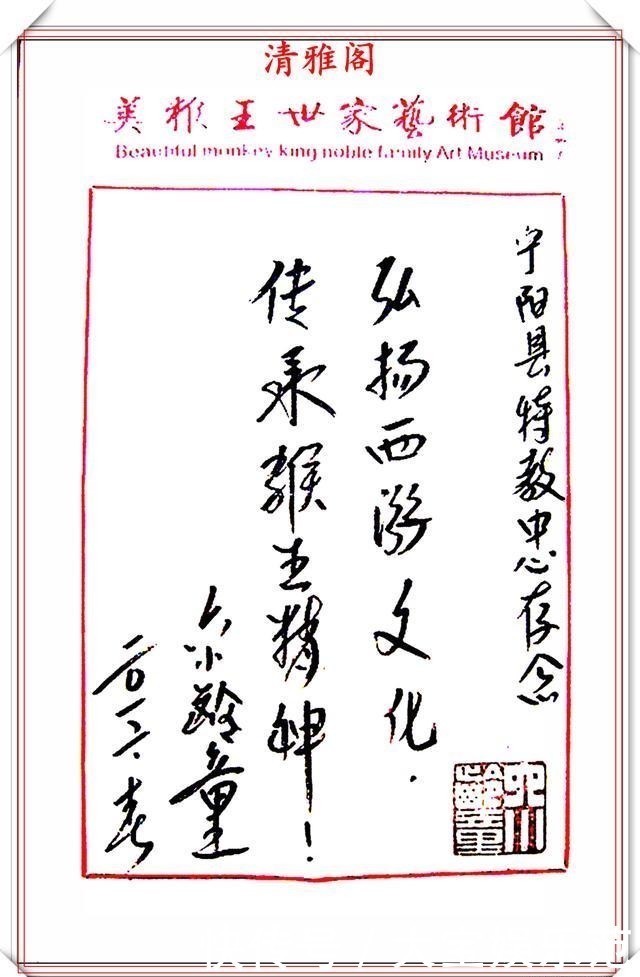 清雅阁
美猴王世家藝術館
Beautiful monkey king noble family Art Museum
宁阳县特教中心存念
弘扬西游文化.
传承猴王精神！
六小龄童
二〇一六.春
六小齡童